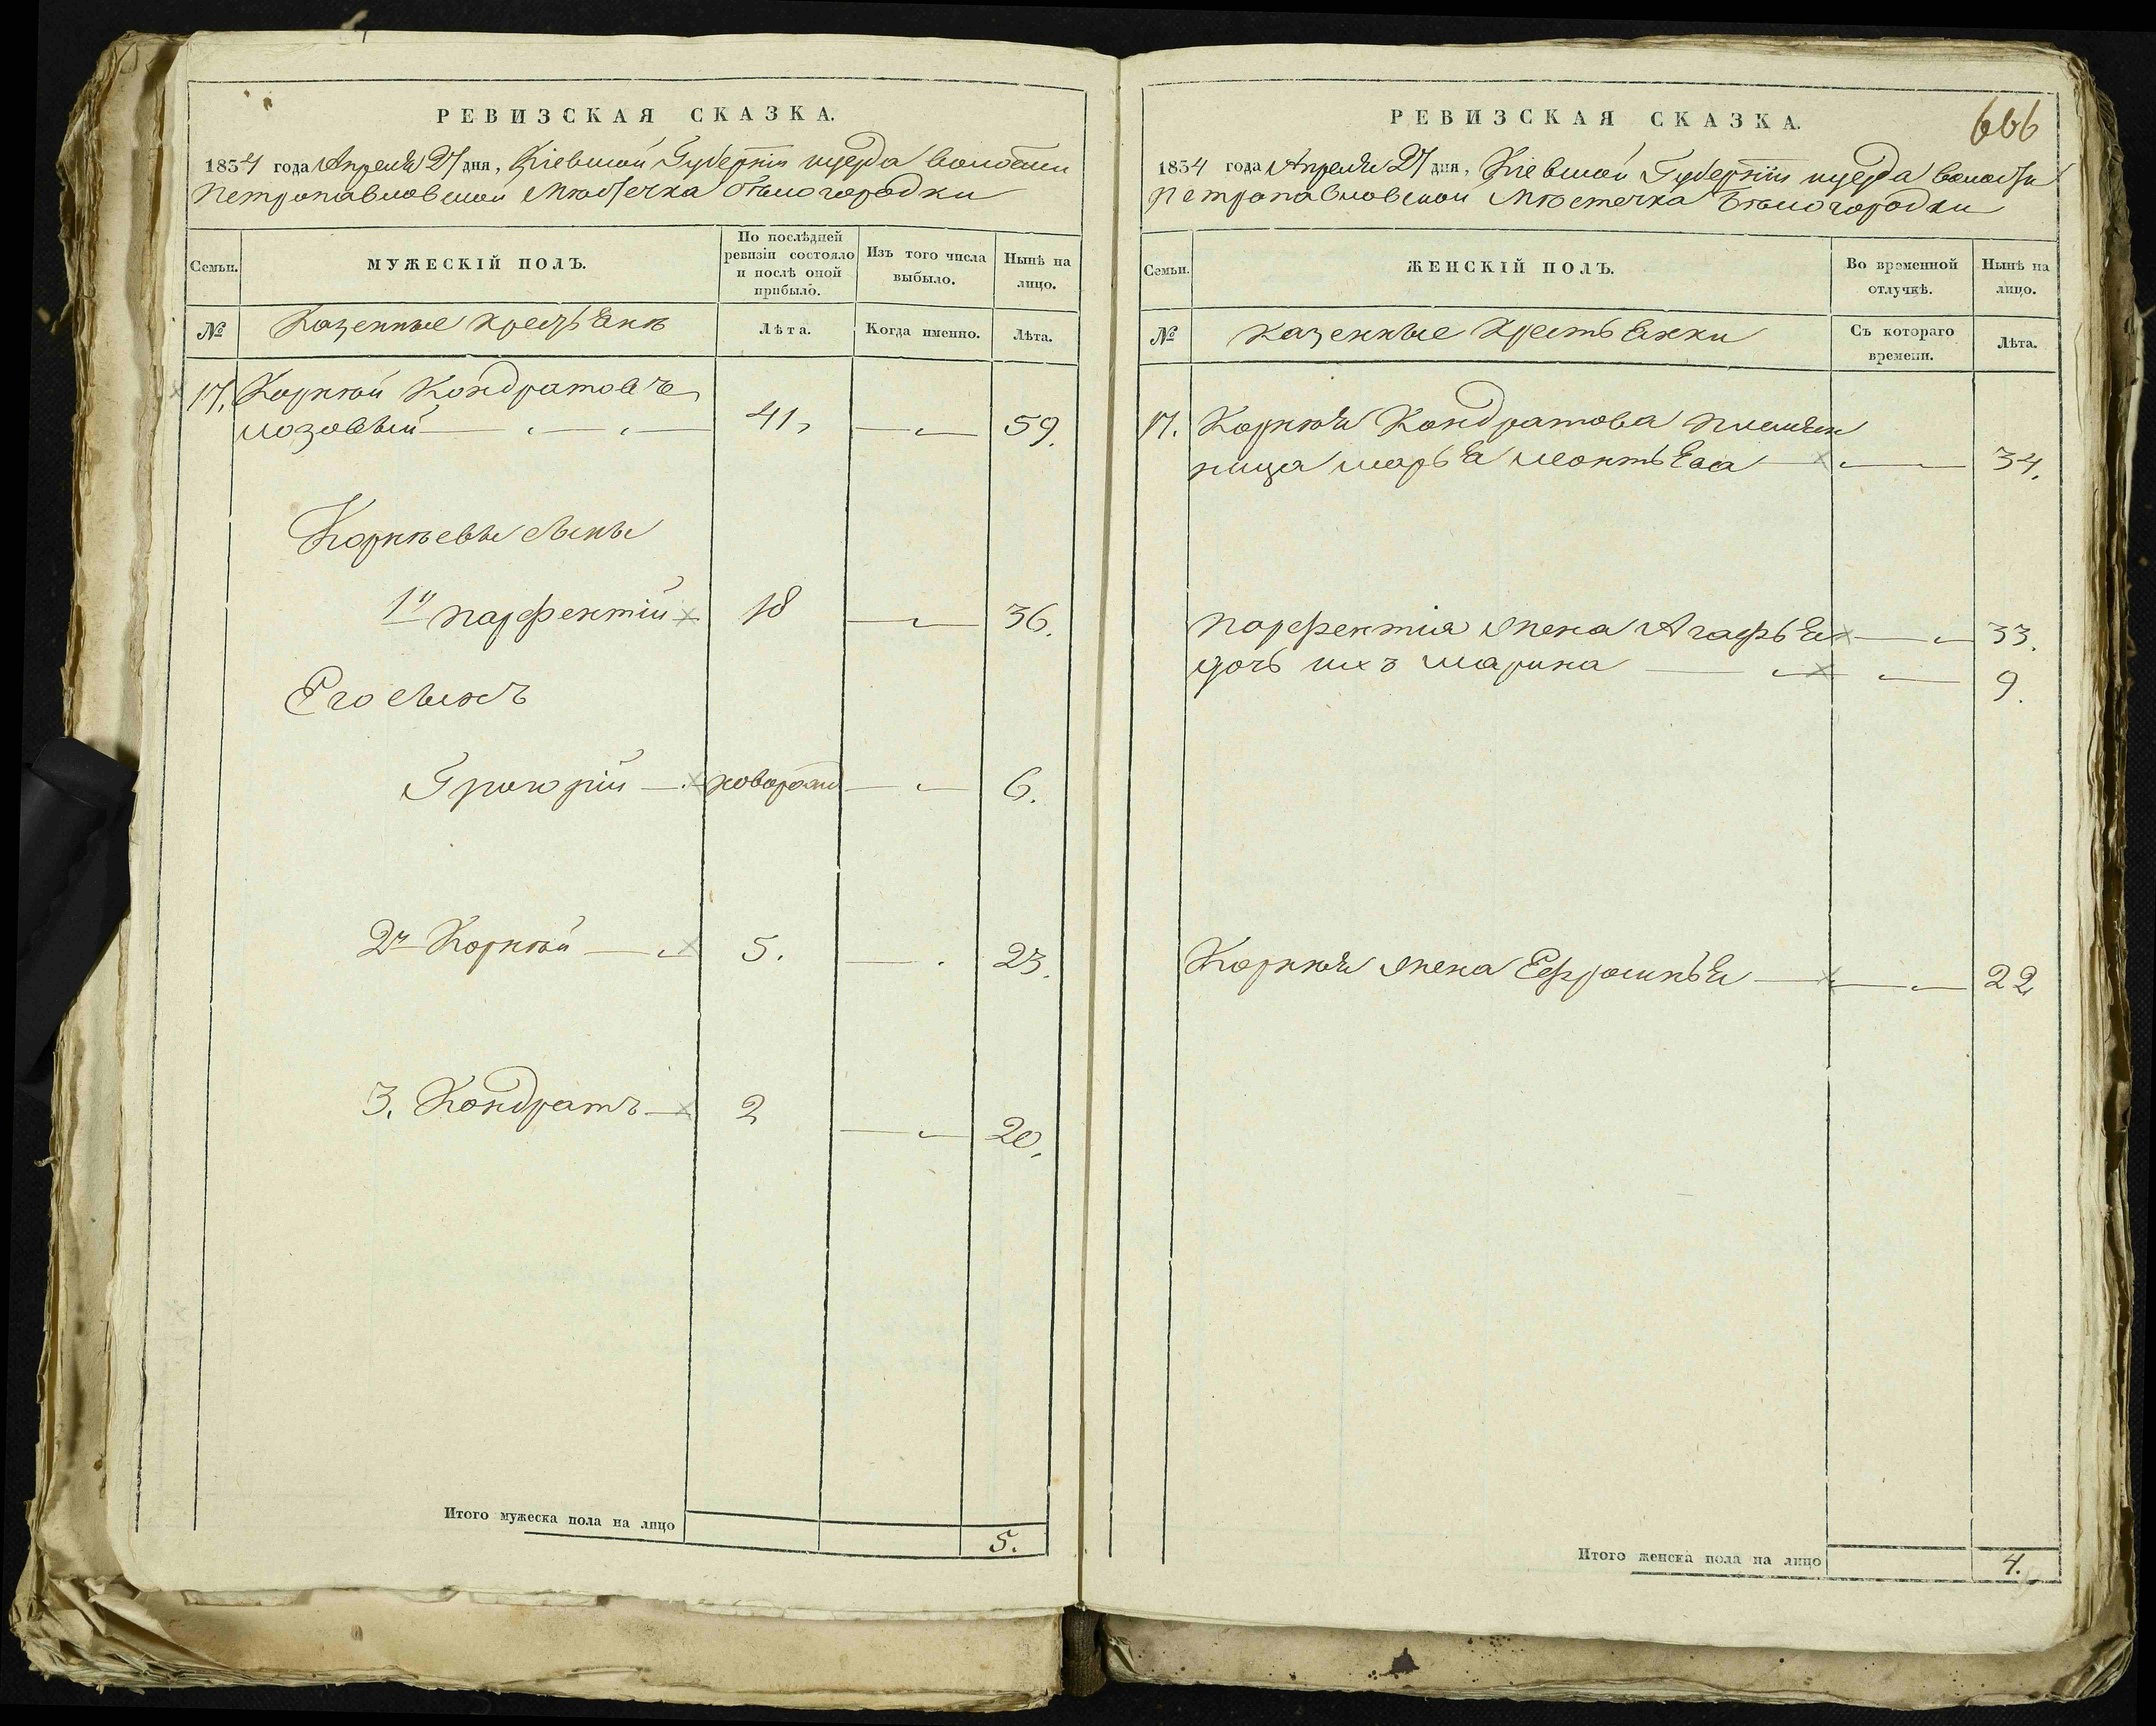 РЕВИЗСКАЯ СКАЗКА.
1854 года Апреля 27 дня, Кіевской Губерніи уезда волости
Петропавловской Мѣстечка Бѣлогородки
Семьи.
МУЖЕСКІЙ ПОЛЪ.
По послѣдней ревизіи состояло и послѣ оной прибыло.
Изъ того числа выбыло.
Нынѣ на лицо.
№
Казенные крестьяне
Лѣта.
Когда именно.
Лѣта.
17. Корнѣй Кондратовъ
Лозовый 41, 59.
Корнѣевы сыны
1й Парфентій 18 36.
Его сынъ
Григорій новорожд 6.
2й Корнѣй 5. 23.
3. Кондратъ 2 20.
Итого мужеска пола на лицо 5.
666
РЕВИЗСКАЯ СКАЗКА.
1854 года Апреля 27 дня, Кіевской Губерніи уезда волости
Петропавловской Мѣстечка Бѣлогородки
Семьи.
ЖЕНСКІЙ ПОЛЪ.
Во временной отлучкѣ.
Нынѣ на лицо.
№
Казенные Крестьянки
Съ котораго времени.
Лѣта.
17. Корнѣя Кондратова племян
ница Марья Леонтьева 34.
Парфентія жена Агафья 33.
дочь ихъ Марина 9.
Корнѣя жена Ефросинья 22
Итого женска пола на лицо 4.